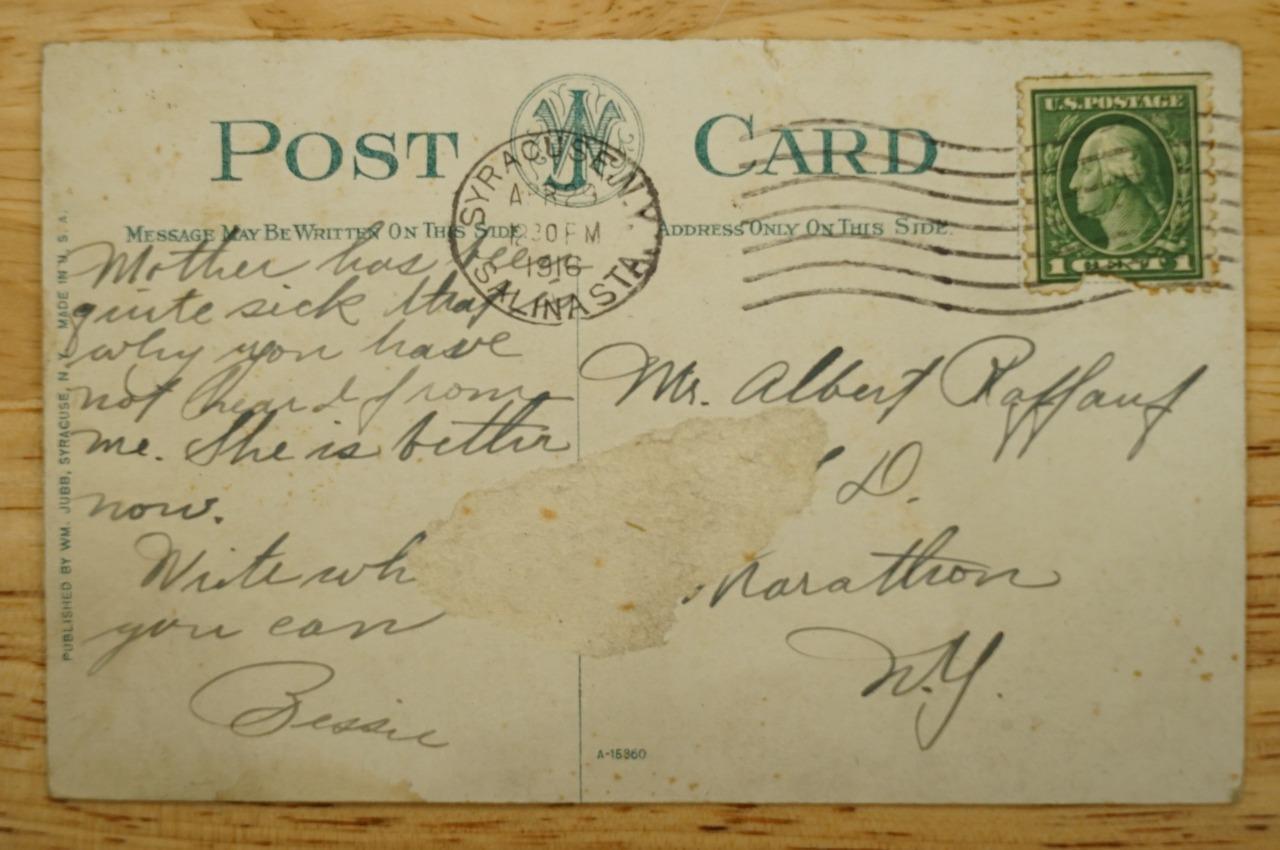 POST CARD
MESSAGE MAY BE WRITTEN ON THIS SIDE.
ADDRESS ONLY ON THIS SIDE.
SYRACUSE, N.Y.
1230 PM
1916
SALINA STA.
U.S. POSTAGE
1 CENT 1
Mother has been
quite sick that
why you have
not heard from
me. She is better
now.
Write wh
you can
Bessie
Mr. Albert Raffauf
D.
Marathon
N.Y.
A-15360
PUBLISHED BY WM. JUBB, SYRACUSE, N.Y. MADE IN U.S.A.